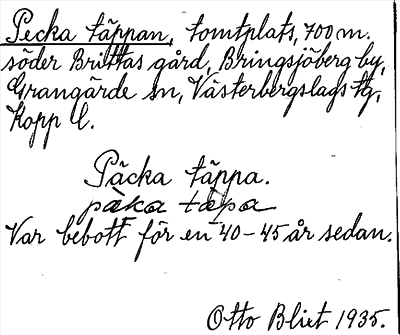 Pecka täppan, tomtplats, 700 m.
söder Brittas gård, Bringsjöberg by,
Grangärde sn, Västerbergslags tg,
Kopp l.
Päcka täppa.
päka täpa
Var bebott för en 40-45 år sedan.
Otto Blixt 1935.